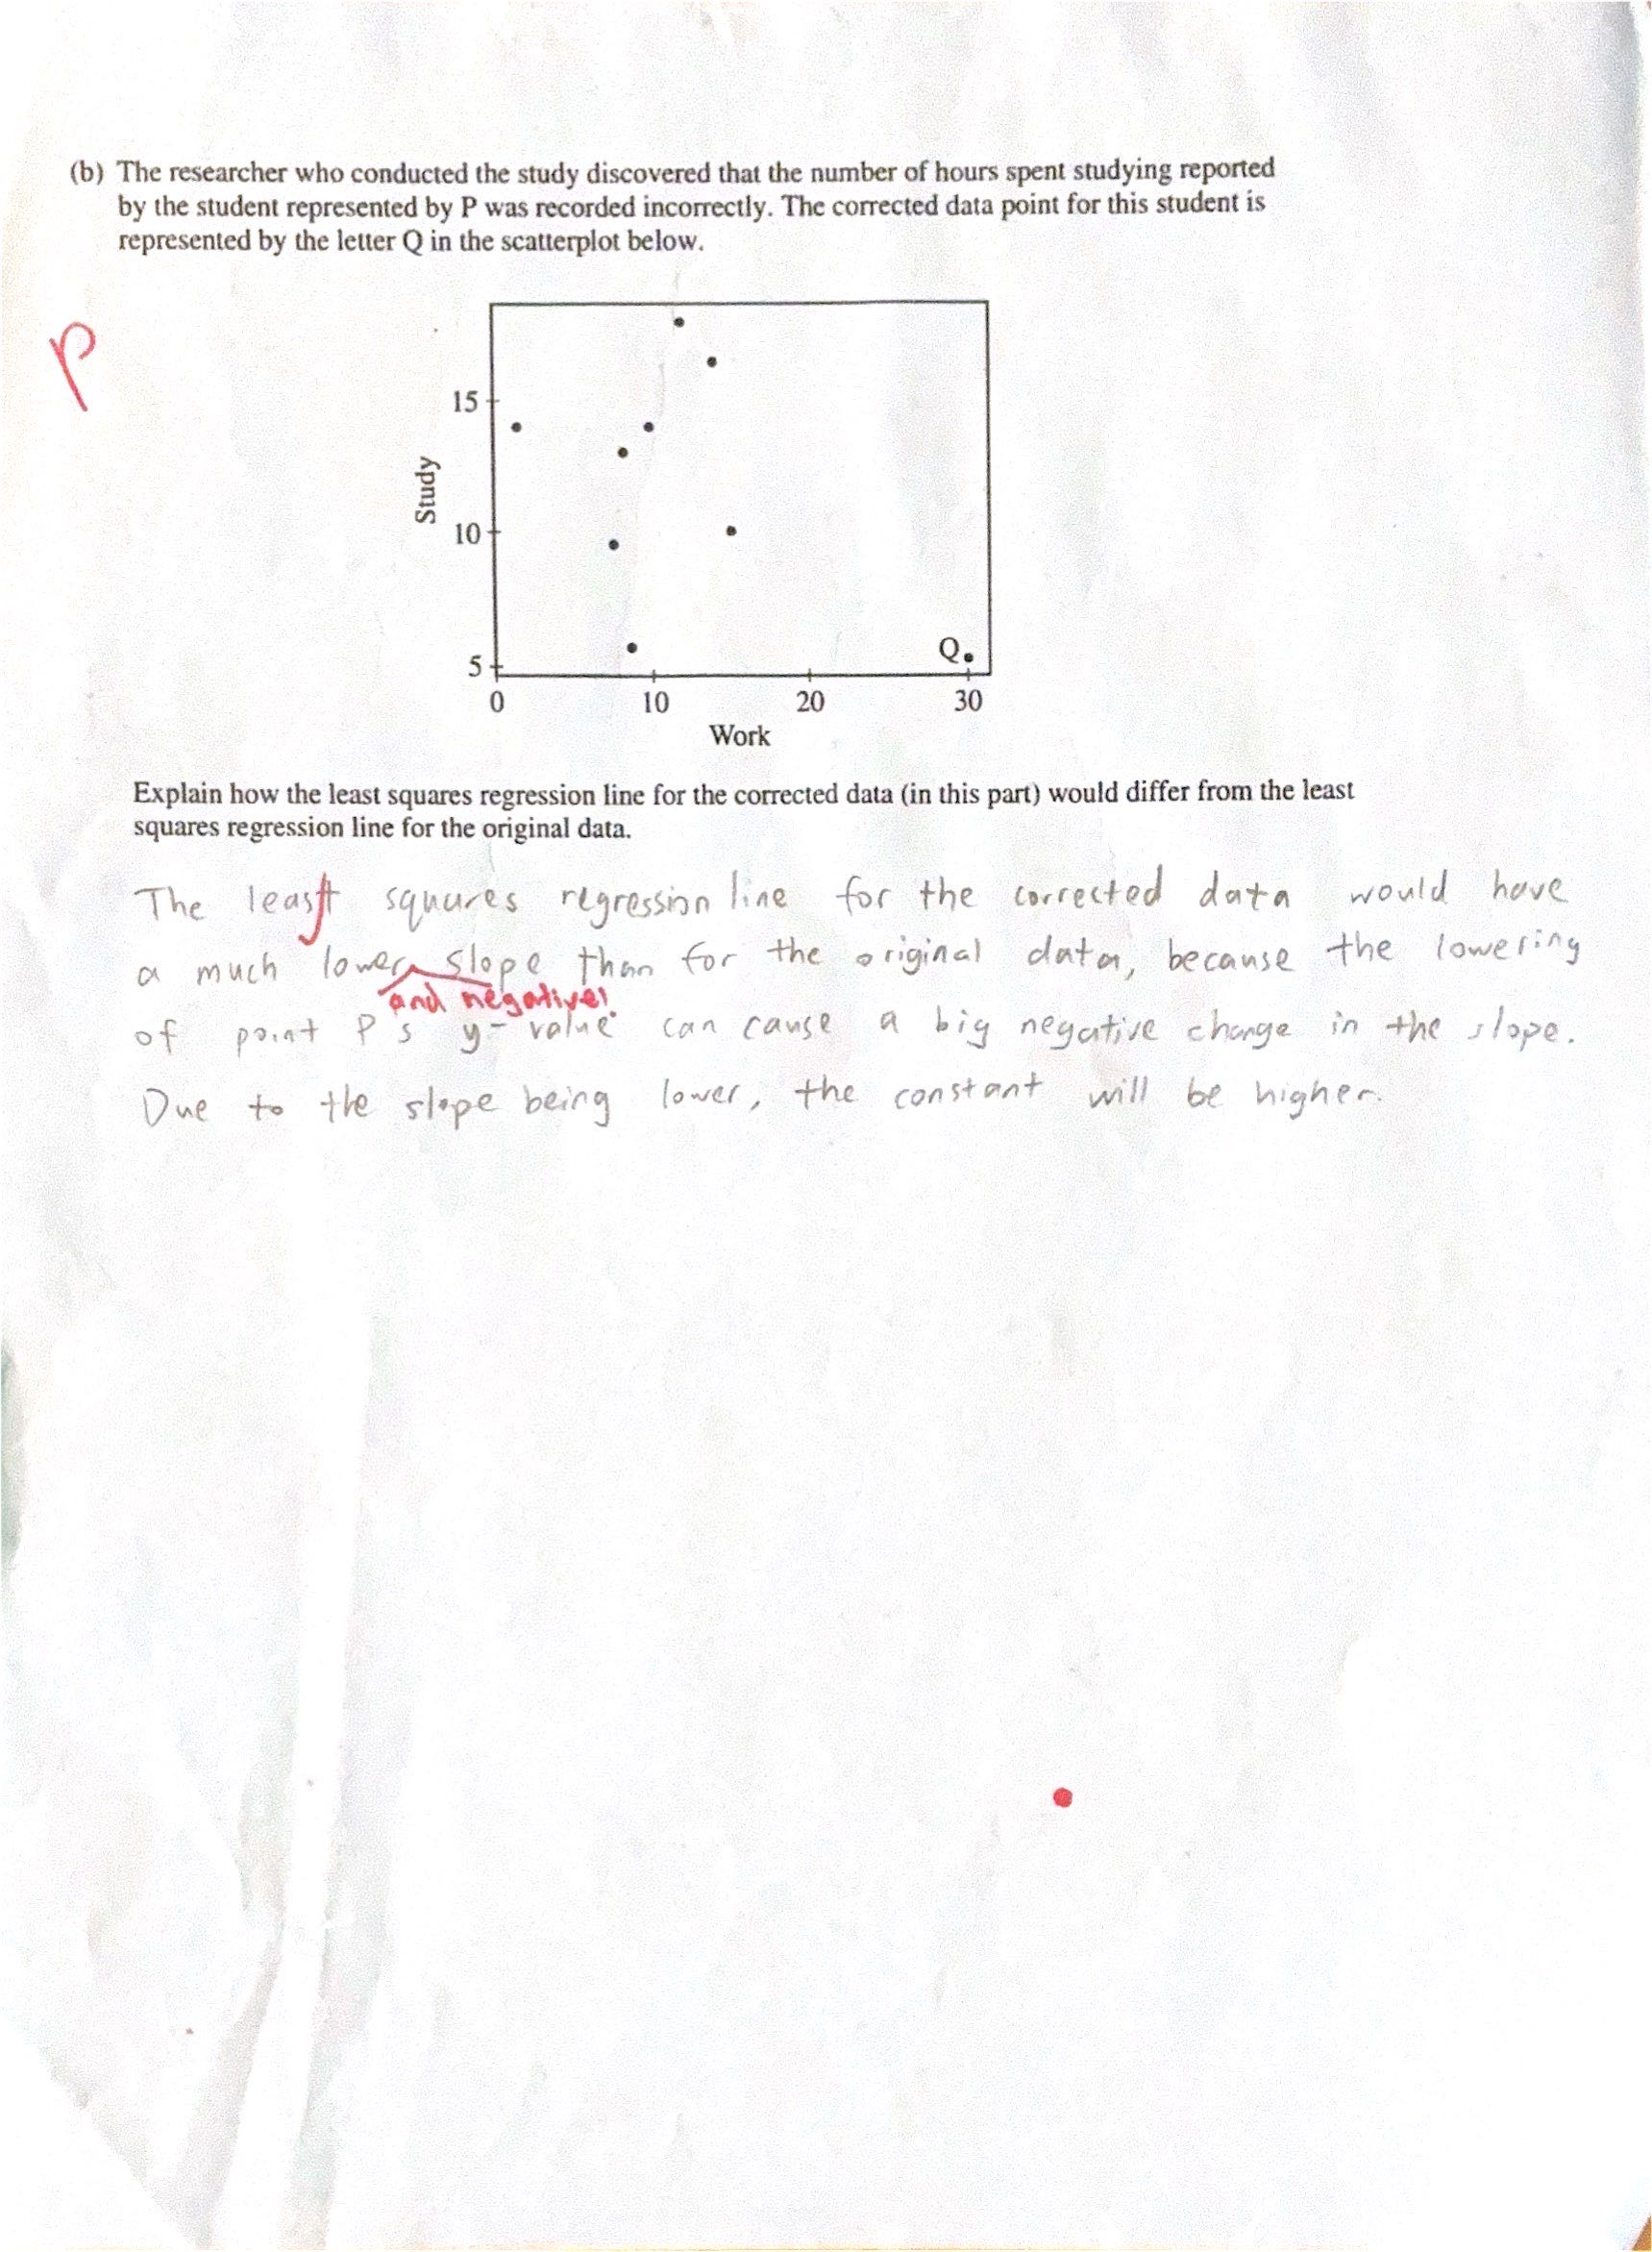 (b) The researcher who conducted the study discovered that the number of hours spent studying reported
by the student represented by P was recorded incorrectly. The corrected data point for this student is
represented by the letter Q in the scatterplot below.
P
15
10
5
Study
Q
0 10 20 30
Work
Explain how the least squares regression line for the corrected data (in this part) would differ from the least
squares regression line for the original data.
The least squares regression line for the corrected data would have
a much lower slope than for the original data, because the lowering
and negative!
of point P's y-value can cause a big negative change in the slope.
Due to the slope being lower, the constant will be higher.